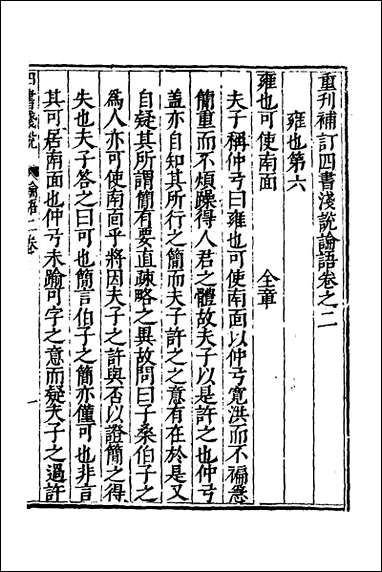 重刊補訂四書淺說論語卷之二
雍也第六
雍也可使南面 全章
夫子稱仲弓曰雍也可使南面以仲弓寬洪而不褊急
簡重而不煩躁得人君之體故夫子以是許之也仲弓
盖亦自知其所行之簡而夫子許之之意有在於是又
自疑其所謂簡有要直疎略之異故問曰子桑伯子之
為人亦可使南面乎將因夫子之許與否以證簡之得
失也夫子答之曰可也簡言伯子之簡亦僅可也非言
其可居南面也仲弓未踰可字之意而疑夫子之過許
四書淺說 論語二卷 一